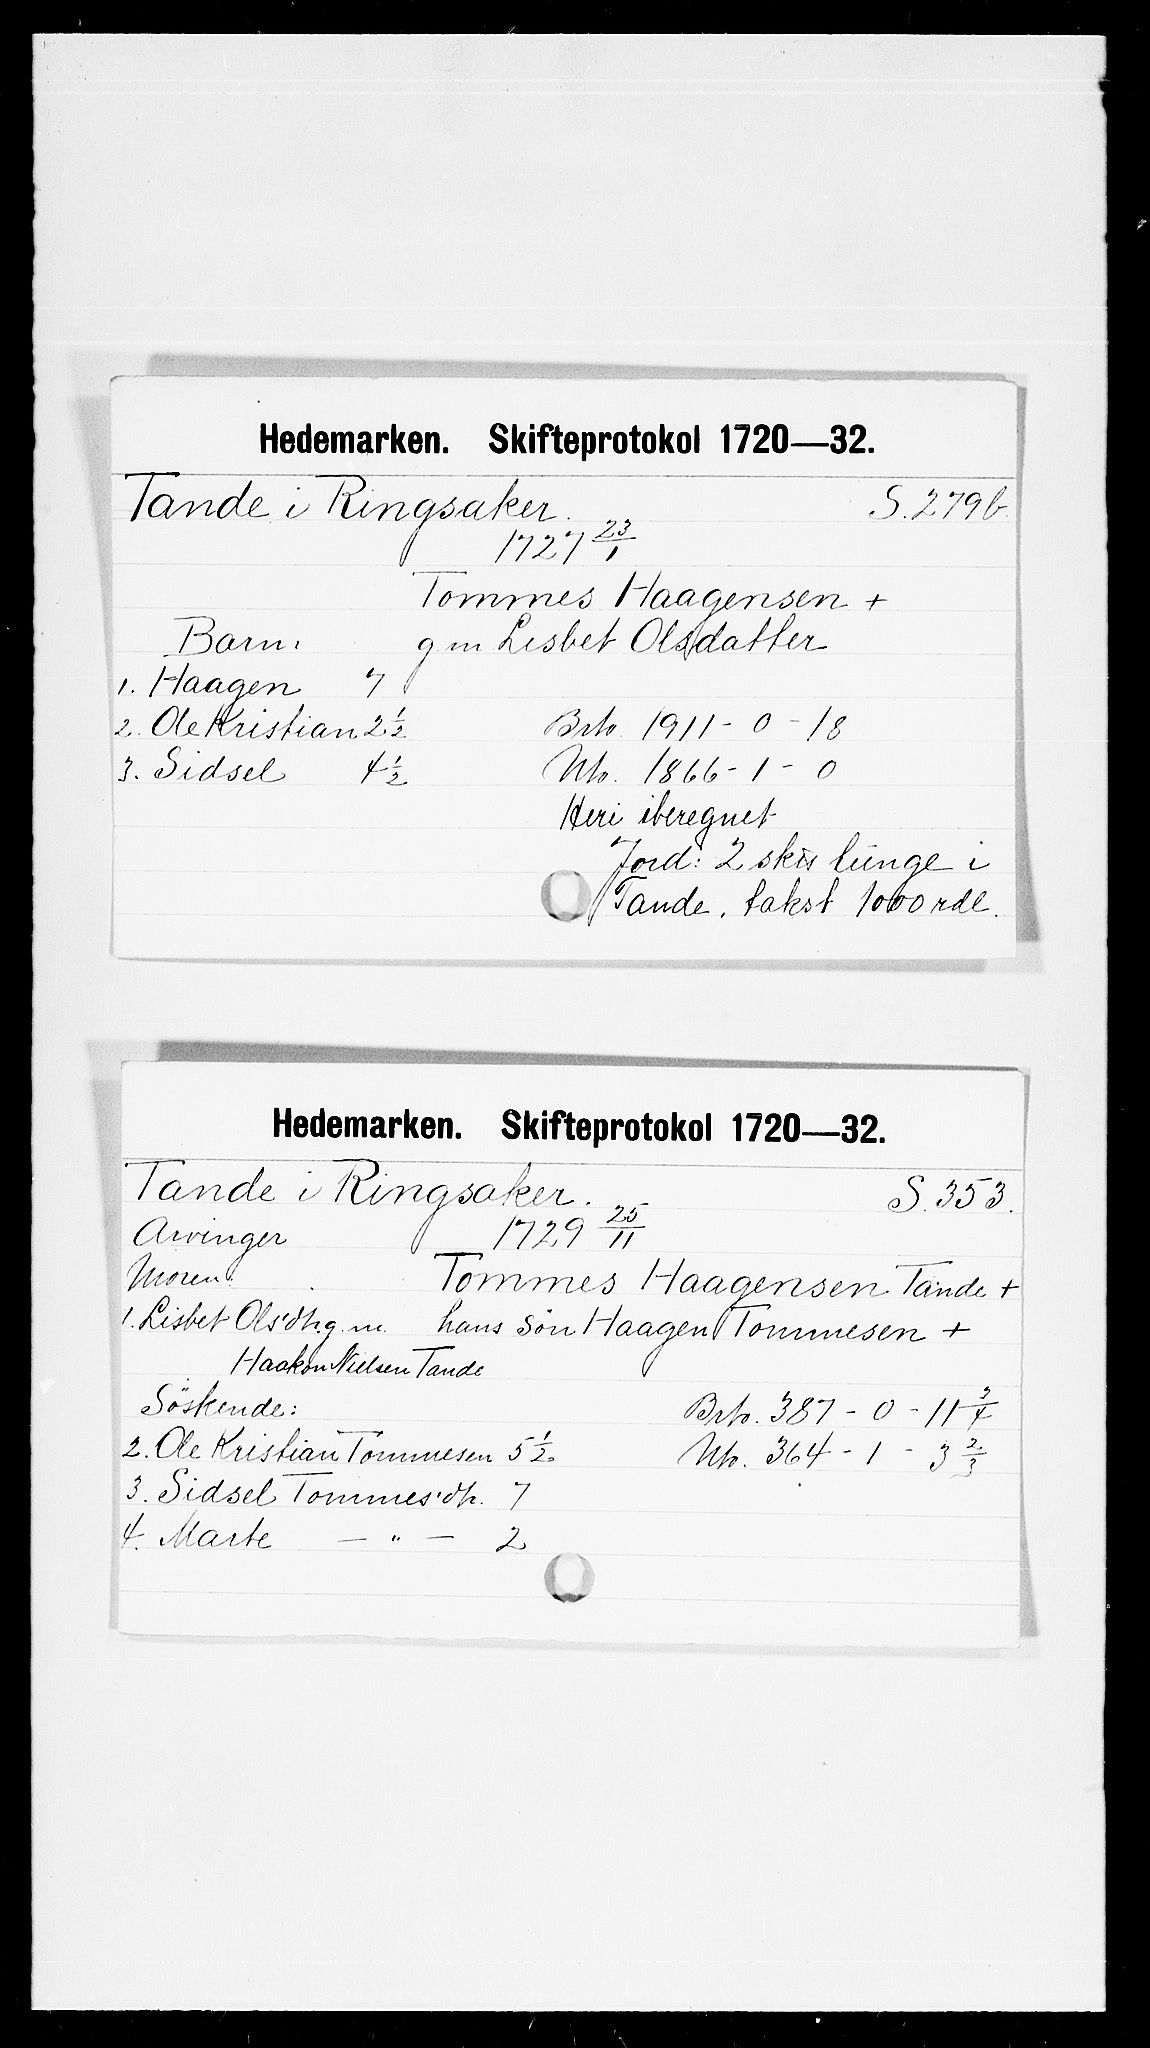 Hedemarken. Skifteprotokol 1720—32.
Tande i Ringsaker. S. 279b.
1727 23/1
Tommes Haagensen +
Barn: gm Lisbet Olsdatter
1. Haagen 7
2. Ole Kristian 2 1/2 Brto. 1911 - 0 - 18
3. Sidsel 4 1/2 Nto. 1866 - 1 - 0
Heri iberegnet
Jord: 2 skts tunge i
Tande, takst 1000 rdl.
Hedemarken. Skifteprotokol 1720—32.
Tande i Ringsaker. S. 353.
Arvinger 1729 25/11
Moren: Tommes Haagensen Tande +
1. Lisbet Ols'dtr. g. m. hans Søn Haagen Tommesen +
Haakon Nielsen Tande
Söskende: Brto. 387 - 0 - 11 3/4
2. Ole Kristian Tommesen 5 1/2 Nto. 364 - 1 - 3 2/3
3. Sidsel Tommes'dtr. 7
4. Marte — " — 2